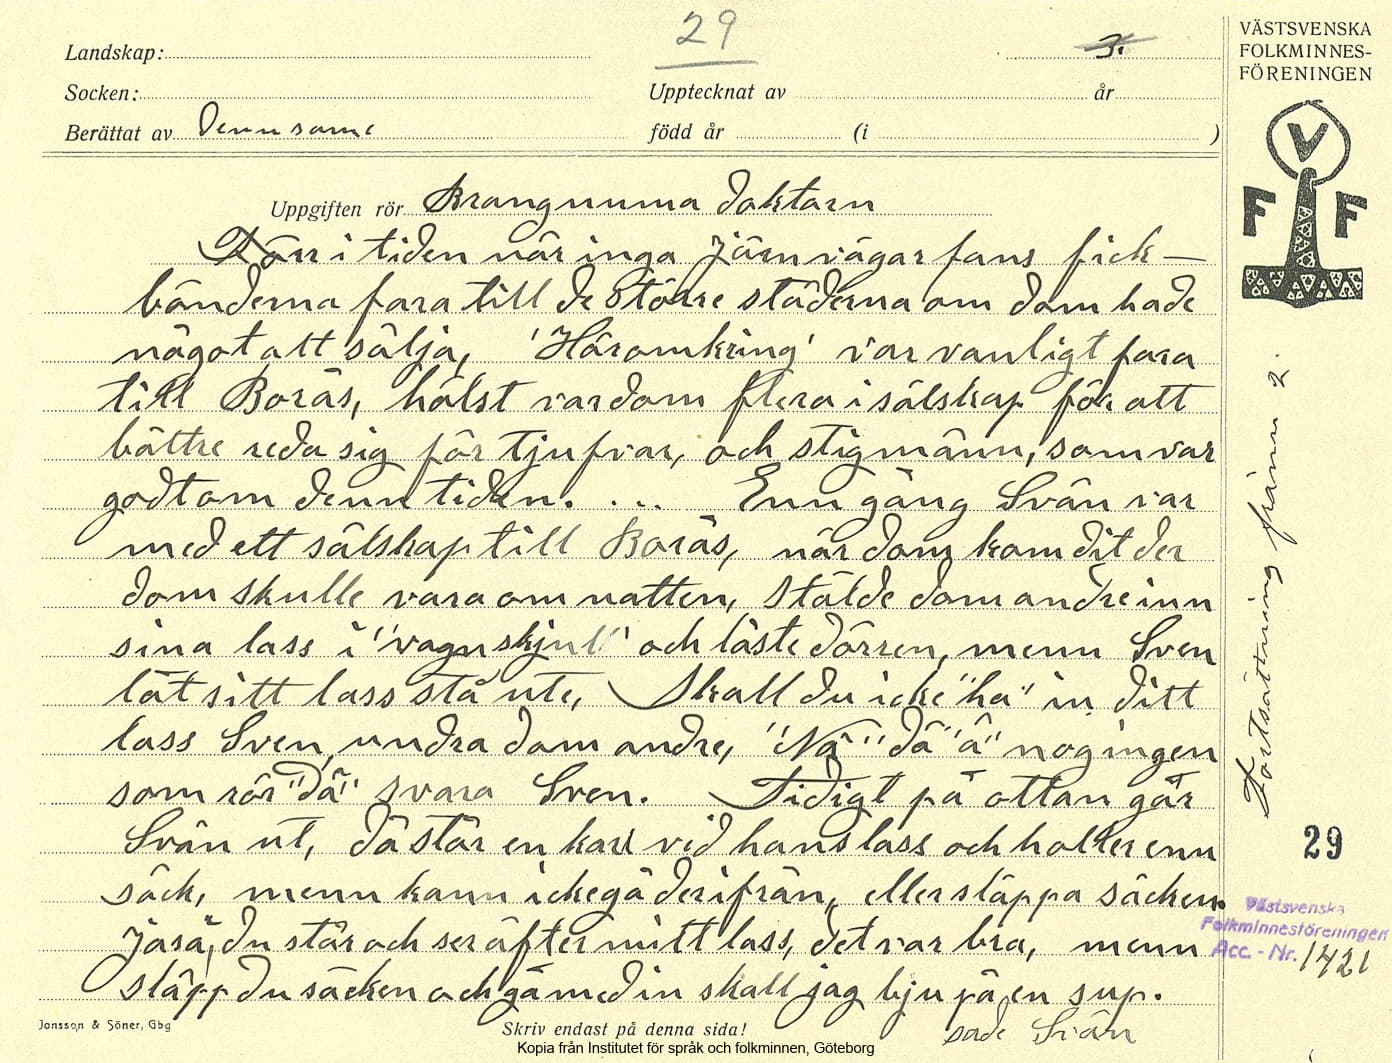 29
3.
Landskap:
Socken:
Upptecknat av
år
Berättat av Densame
född år
(i
)
VÄSTSVENSKA
FOLKMINNES-
FÖRENINGEN
V
F F
Uppgiften rör Brangnuma doktorn
Förr i tiden när inga järnvägar fans fick
bönderna fara till de större städerna om dom hade
något att sälja, 'Häromkring' var vanligt fara
till Borås, hälst var dom flera i sälskap för att
bättre reda sig för tjufvar, och stigmänn, som var
godt om denn tiden. ... Enn gång Svän var
med ett sälskap till Borås, när dom kom dit der
dom skulle vara om natten, stälde dom andre inn
sina lass i "vagnskjul" och låste dörren, menn Sven
lät sitt lass stå ute, Skall du icke "ha" in ditt
lass Sven, undra dom andre, "Nä" "dä" "ä" nog ingen
som rör "dä" svara Sven. Tidigt på ottan går
Svän ut, då står en karl vid hans lass och håller enn
säck, menn kann icke gå derifrån, eller släppa säcken.
Jaså, du står och ser äfter mitt lass, det var bra, menn
släpp du säcken och gå med in skall jag bju på en sup.
sade Svän
Fortsättning från n 2.
29
Västsvenska
Folkminnesföreningen
Acc. - Nr. 1421
Jonsson & Söner, Gbg
Skriv endast på denna sida!
Kopia från Institutet för språk och folkminnen, Göteborg